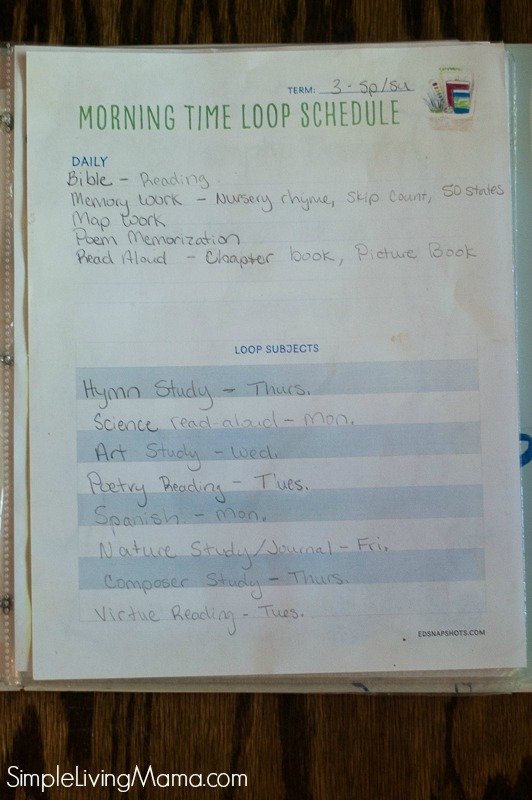 TERM: 3 - Sp/Su
MORNING TIME LOOP SCHEDULE
DAILY
Bible - Reading
Memory Work - Nursery rhyme, Skip Count, 50 states
Map Work
Poem Memorization
Read Aloud - Chapter book, Picture Book
LOOP SUBJECTS
Hymn Study - Thurs.
Science read-aloud - Mon.
Art Study - Wed.
Poetry Reading - Tues.
Spanish - Mon.
Nature Study/Journal - Fri.
Composer Study - Thurs.
Virtue Reading - Tues.
EDSNAPSHOTS.COM
SimpleLivingMama.com